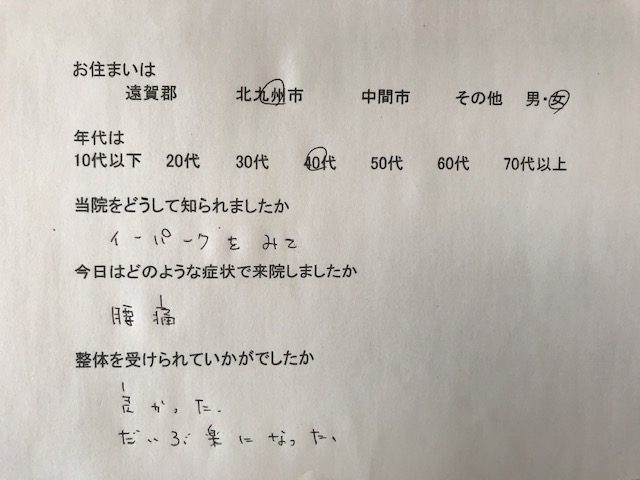 お住まいは
遠賀郡 北九州市 中間市 その他 男・女
年代は
10代以下 20代 30代 40代 50代 60代 70代以上
当院をどうして知られましたか
イーパークをみて
今日はどのような症状で来院しましたか
腰痛
整体を受けられていかがでしたか
良かった.
だいぶ楽になった、